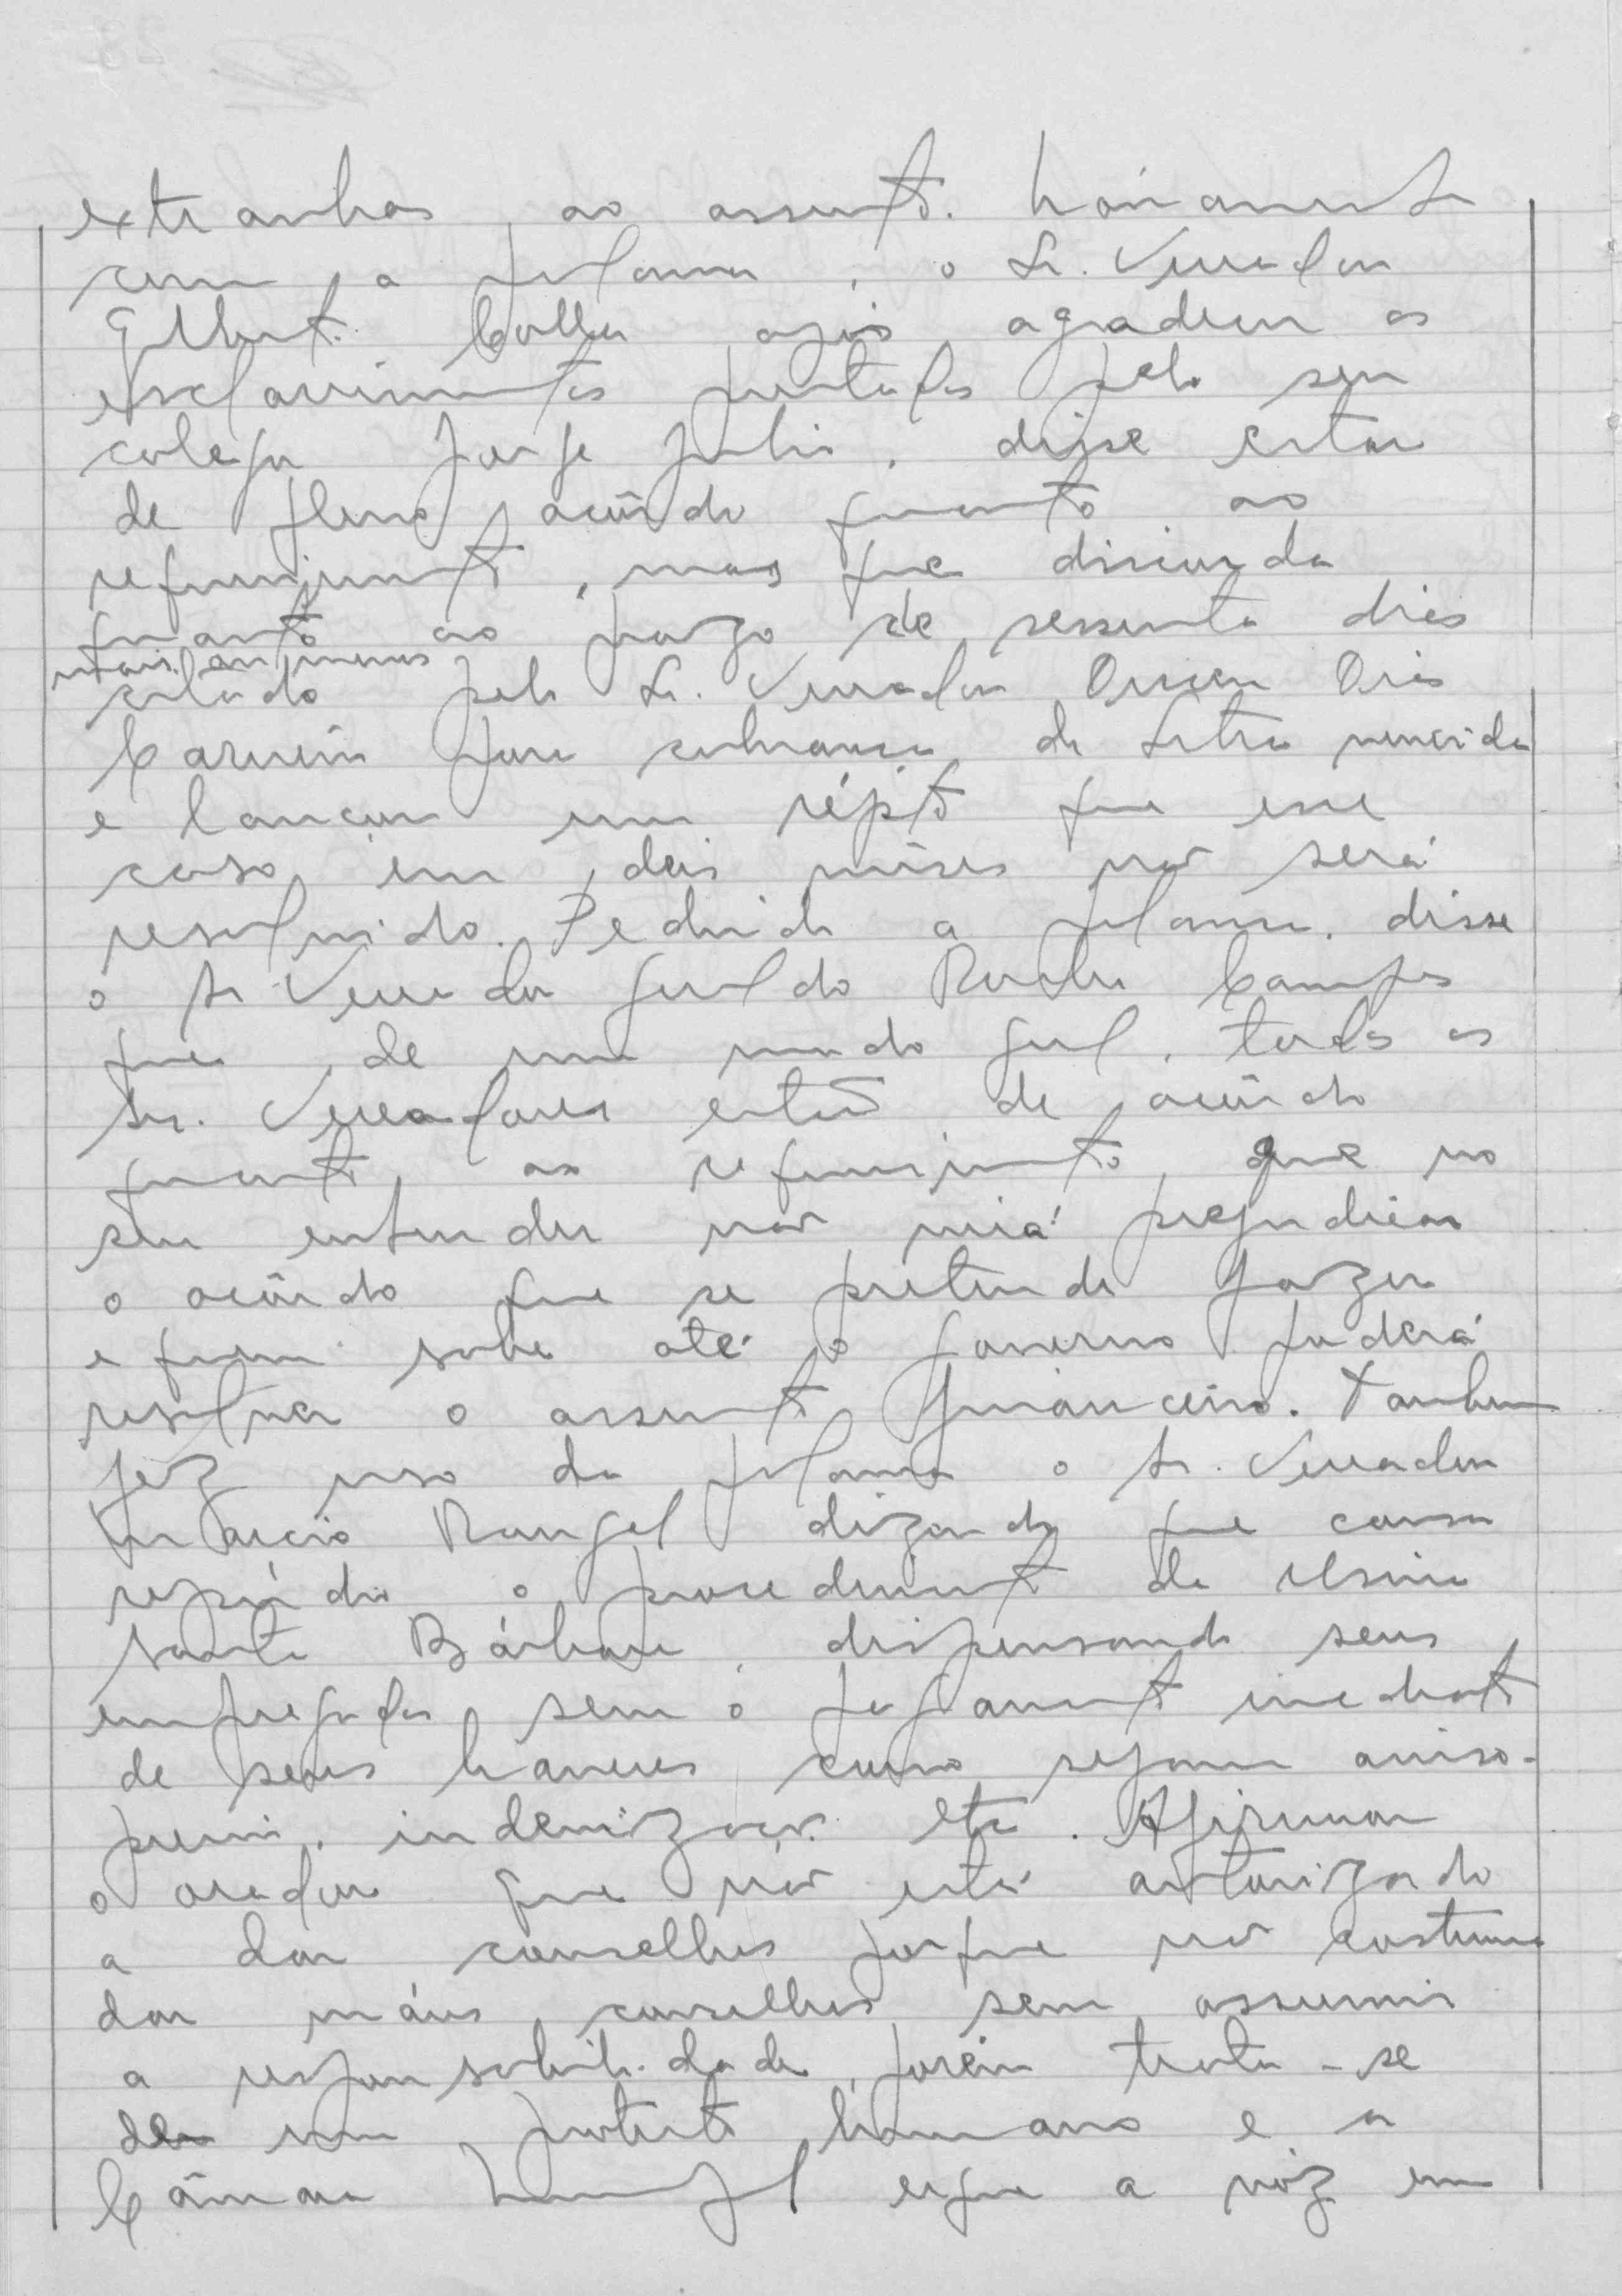 extranhas ao assunto. Novamente
com a palavra, o Sr. Vereador
Gilberto após agradecer os
esclarecimentos prestados pelo seu
colega Jorge Julio, disse estar
de pleno acôrdo quanto ao
requerimento, mas que discorda
quanto ao prazo de sessenta dias
mais ou menos
citado pelo Sr. Vereador Oscar Dias
para cobrança de letra vencida
e lançou um répto que esse
caso em dois mêses não será
resolvido. Pedindo a palavra, disse
o Sr Vereador Geraldo Rocha Campos
que, de um modo geral, todos os
Srs. Vereadores estão de acôrdo
quanto ao requerimento, que no
seu entender não virá prejudicar
o acôrdo que se pretende fazer
e quem sabe até o Governo poderá
resolver o assunto financeiro. Tambem
fez uso da palavra o Sr. Vereador
Marcio Rangel dizendo que causa
repúdio o procedimento da Usina
Santa Bárbara, dispensando seus
empregados sem o pagamento imediato
de seus haveres como sejam aviso-
previo, indenização etc. Afirmou
o orador que não está autorizado
a dar conselhos porque não costuma
dar máus conselhos sem assumir
a responsabilidade, porém trata-se
de um protesto humano e a
Câmara Municipal ergue a vóz em